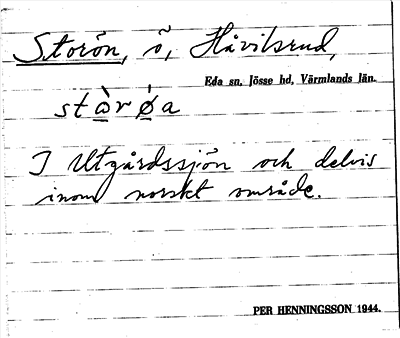 Storön, ö, Håvilsrud,
Eda sn, Jösse hd, Värmlands län.
stɑ̀̀r ǿa
I Utgårdssjön och delvis
inom norskt område.
PER HENNINGSSON 1944.